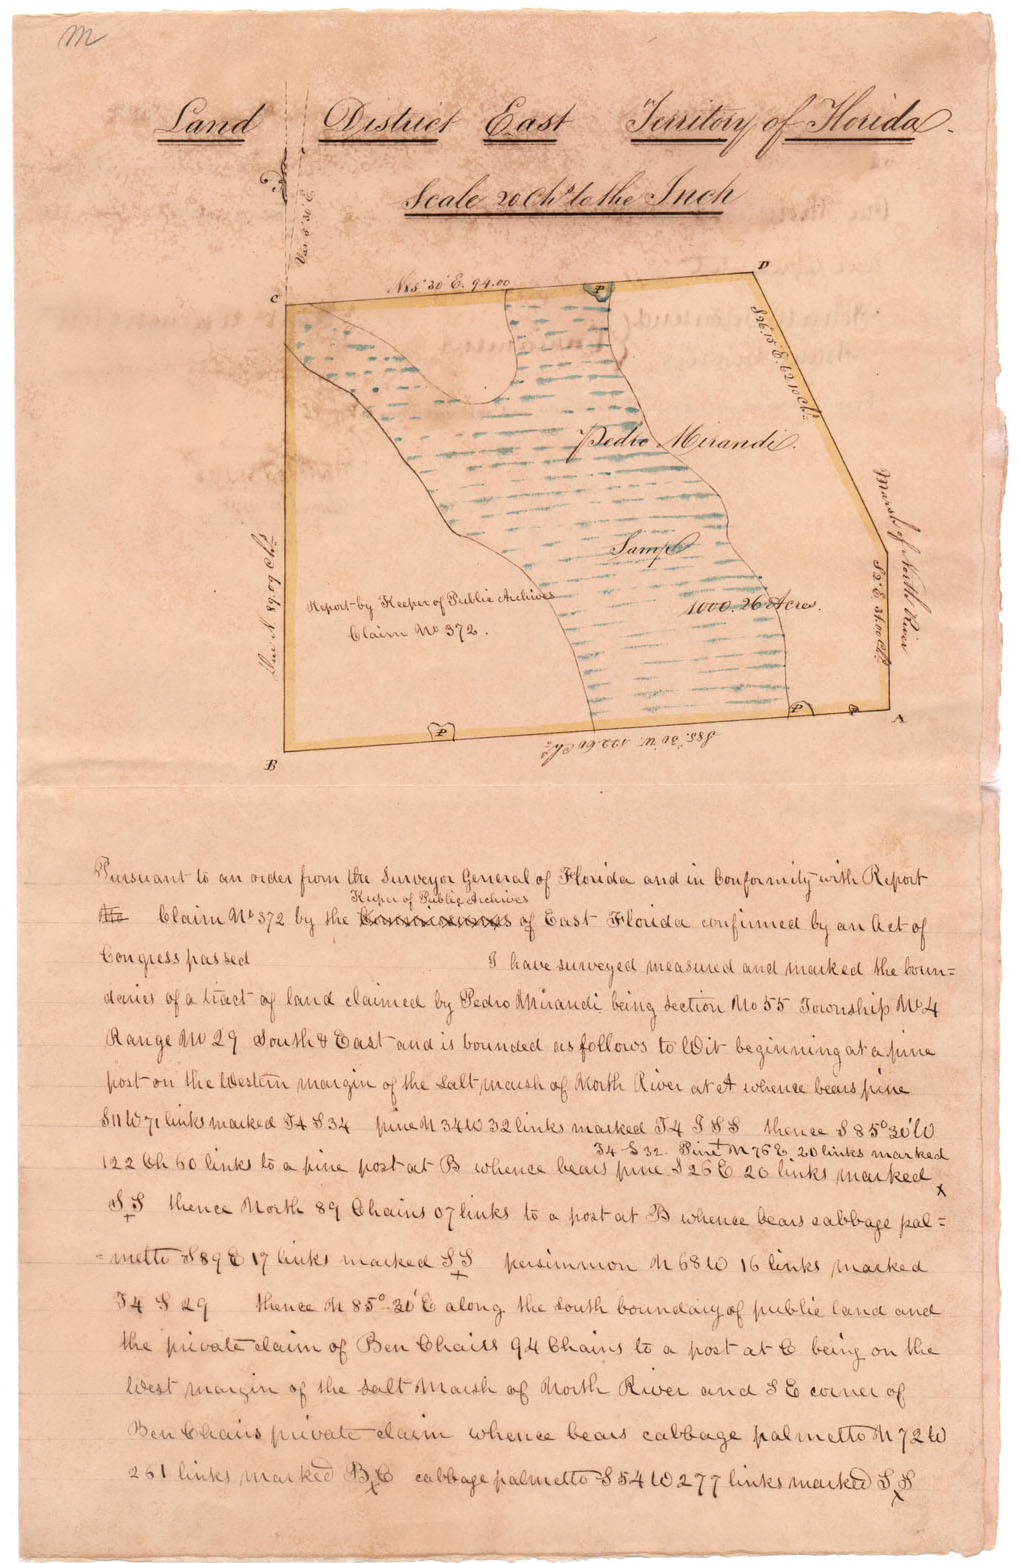 M
Land District East Territory of Florida.
Scale 20 Chs to the Inch
Var. 5° 30' E.
C
N 85° 30' E. 94.00
P
D
S 26° 15' E. 62.10 Chs
Pedro Mirandi.
Marsh of North River
Samp
Due N 89.07 Chs
Report by Keeper of Public Archives
Claim No 372.
1000.26 Acres.
S 2° E. 31.00 Chs
P
P
A
B
S85° 30' W. 122.60 Chs
Pursuant to an order from the Surveyor General of Florida and in Conformity with Report
Keeper of Public Archives
Claim No 372 by the Commissioners of East Florida confirmed by an Act of
Congress passed I have surveyed measured and marked the boun=
daries of a tract of land claimed by Pedro Mirandi being Section No 55 Township No 4
Range No 29 South & East and is bounded as follows to Wit beginning at a pine
post on the Western margin of the Salt marsh of North River at A whence bears pine
S 11 W 71 links marked T4 S34 pine N 34 W 32 links marked T4 S S thence S 85° 30' W
T4 S 32. Pine N 76 E 20 links marked
122 Ch 60 links to a pine post at B whence bears pine S 26 E 20 links marked x
S + S thence North 89 Chains 07 links to a post at B whence bears cabbage pal=
=metto S 89 E 17 links marked S + S persimmon N 68 W 16 links marked
T4 S 29 thence N 85° 30' E along the South boundary of public land and
the private claim of Ben Chairs 94 Chains to a post at C being on the
West margin of the Salt Marsh of North River and S E corner of
Ben Chairs private claim whence bears cabbage palmetto N 72 W
261 links marked B x C cabbage palmetto S 54 W 277 links marked S x S